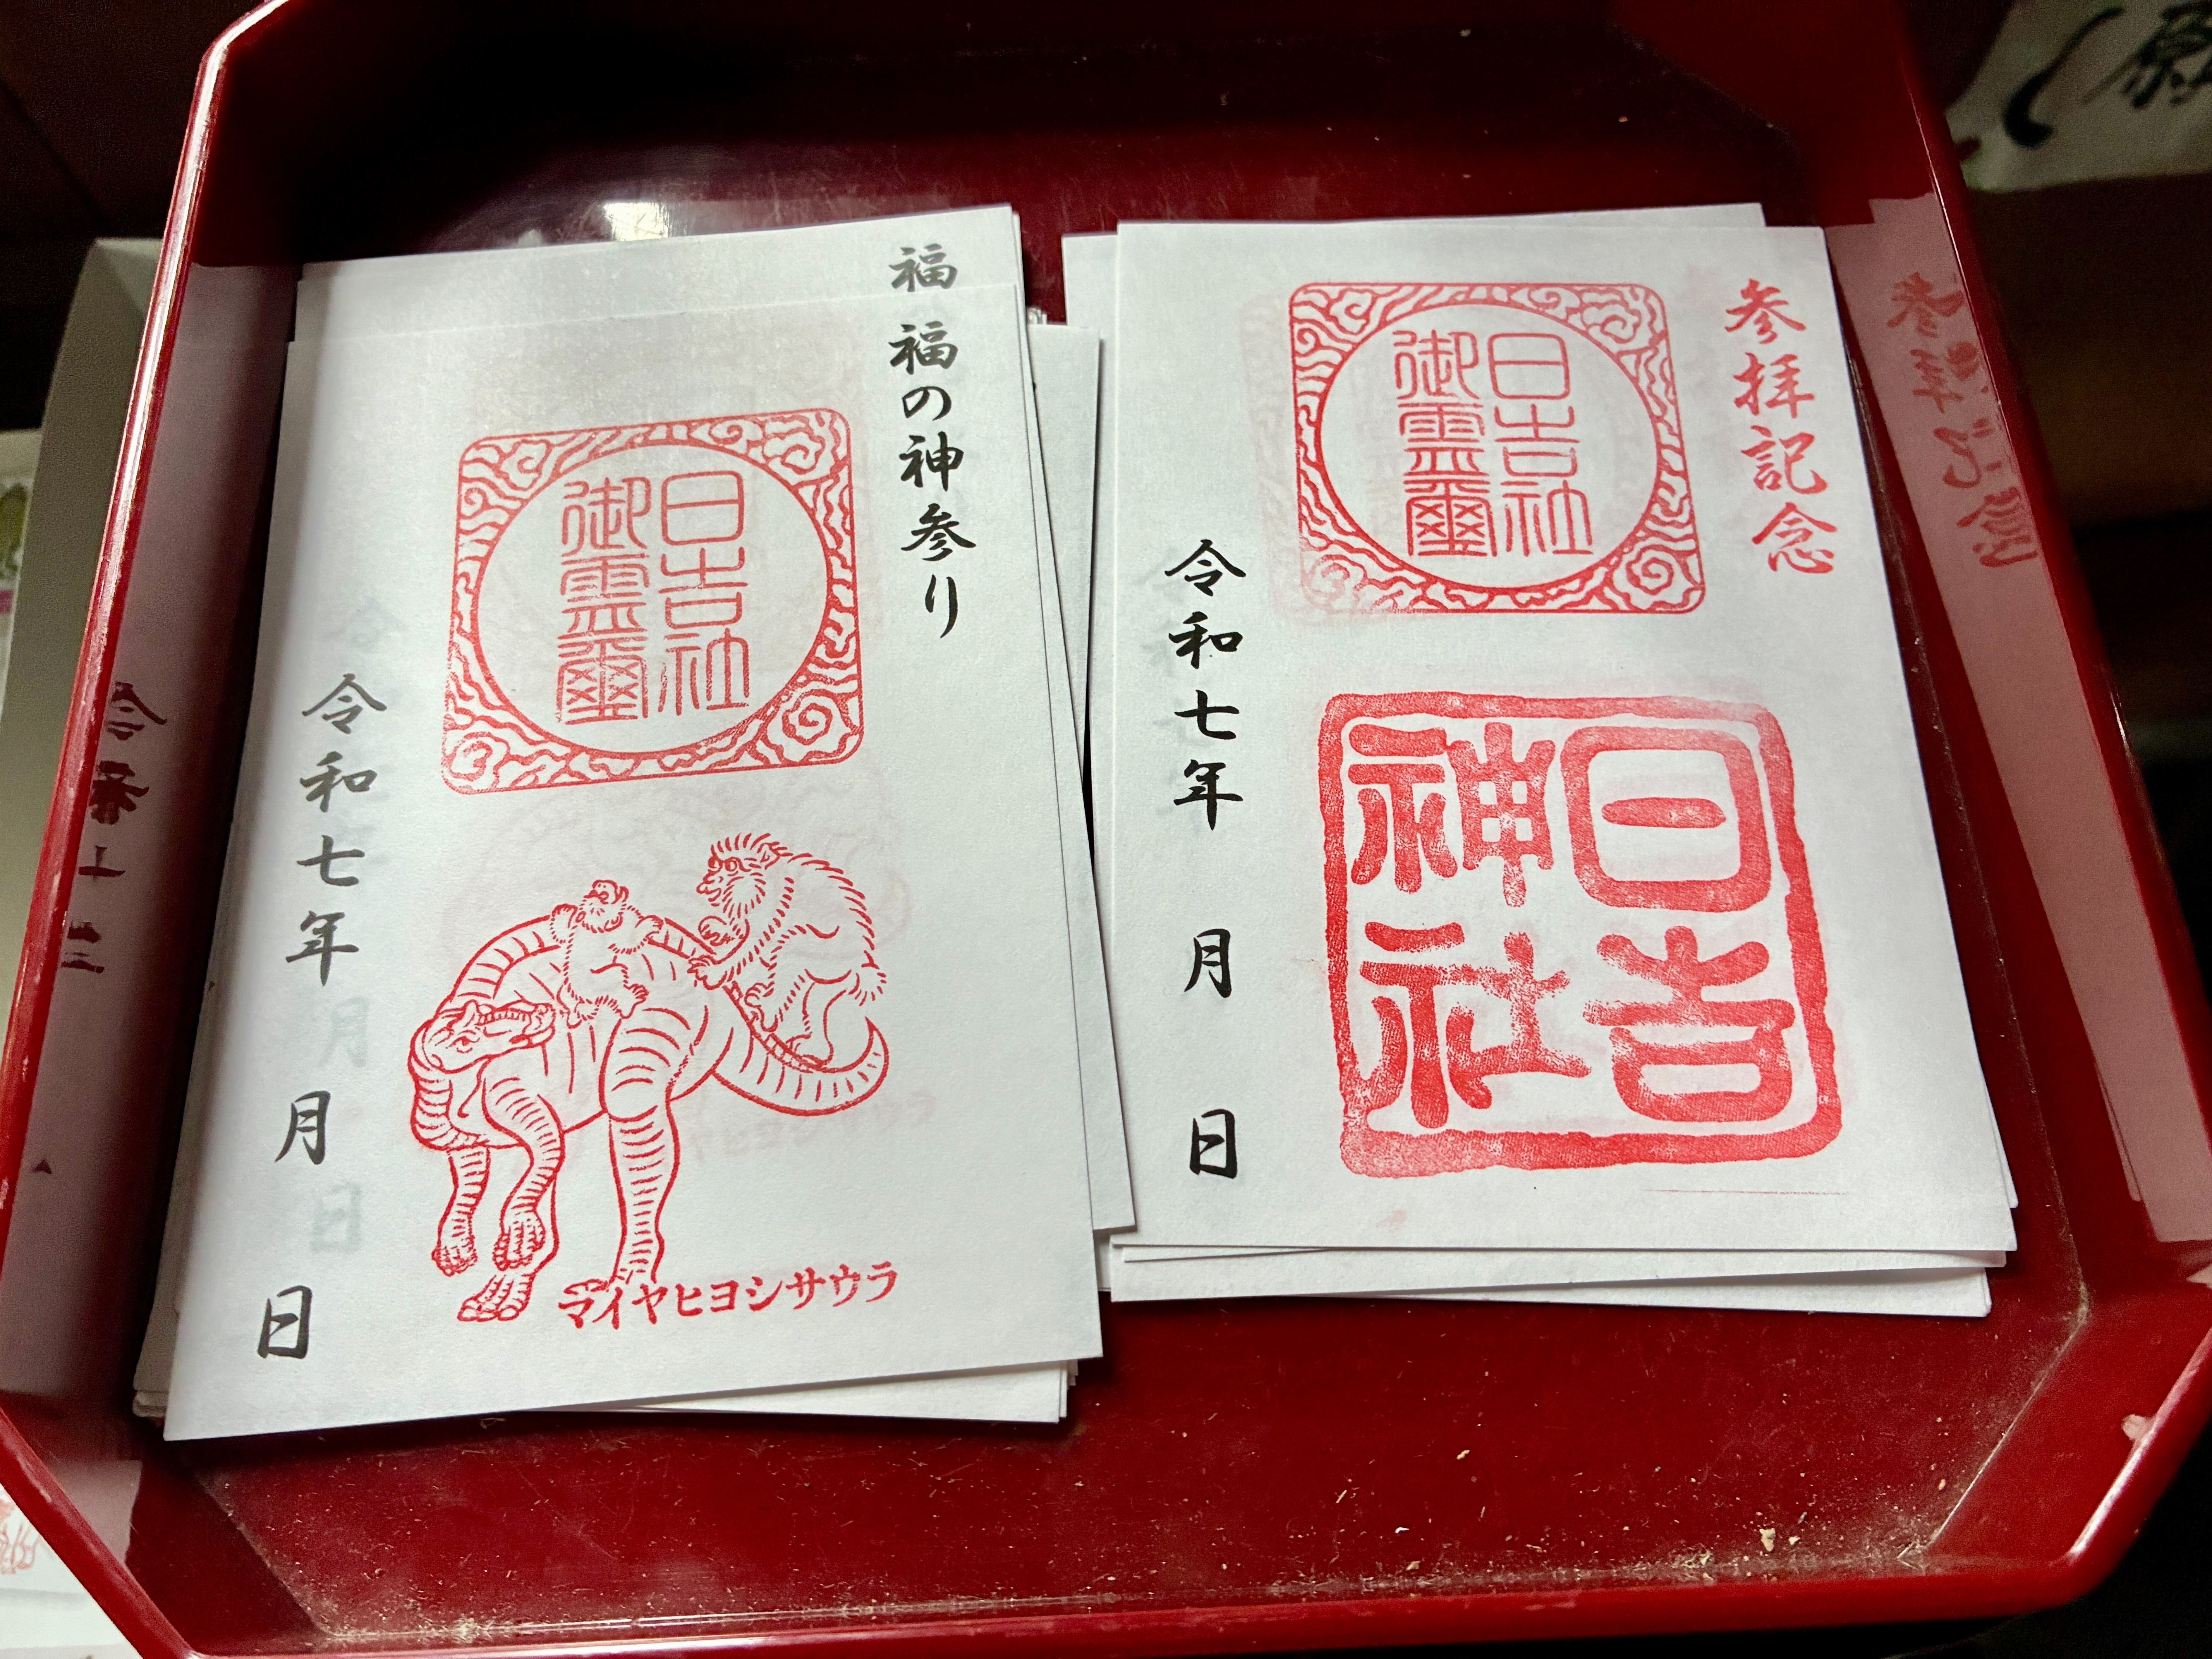 参拝記念
日吉社
御霊璽
日吉
神社
令和七年 月 日
福
福の神参り
日吉社
御霊璽
マイヤヒヨシサウラ
令和七年 月 日
願